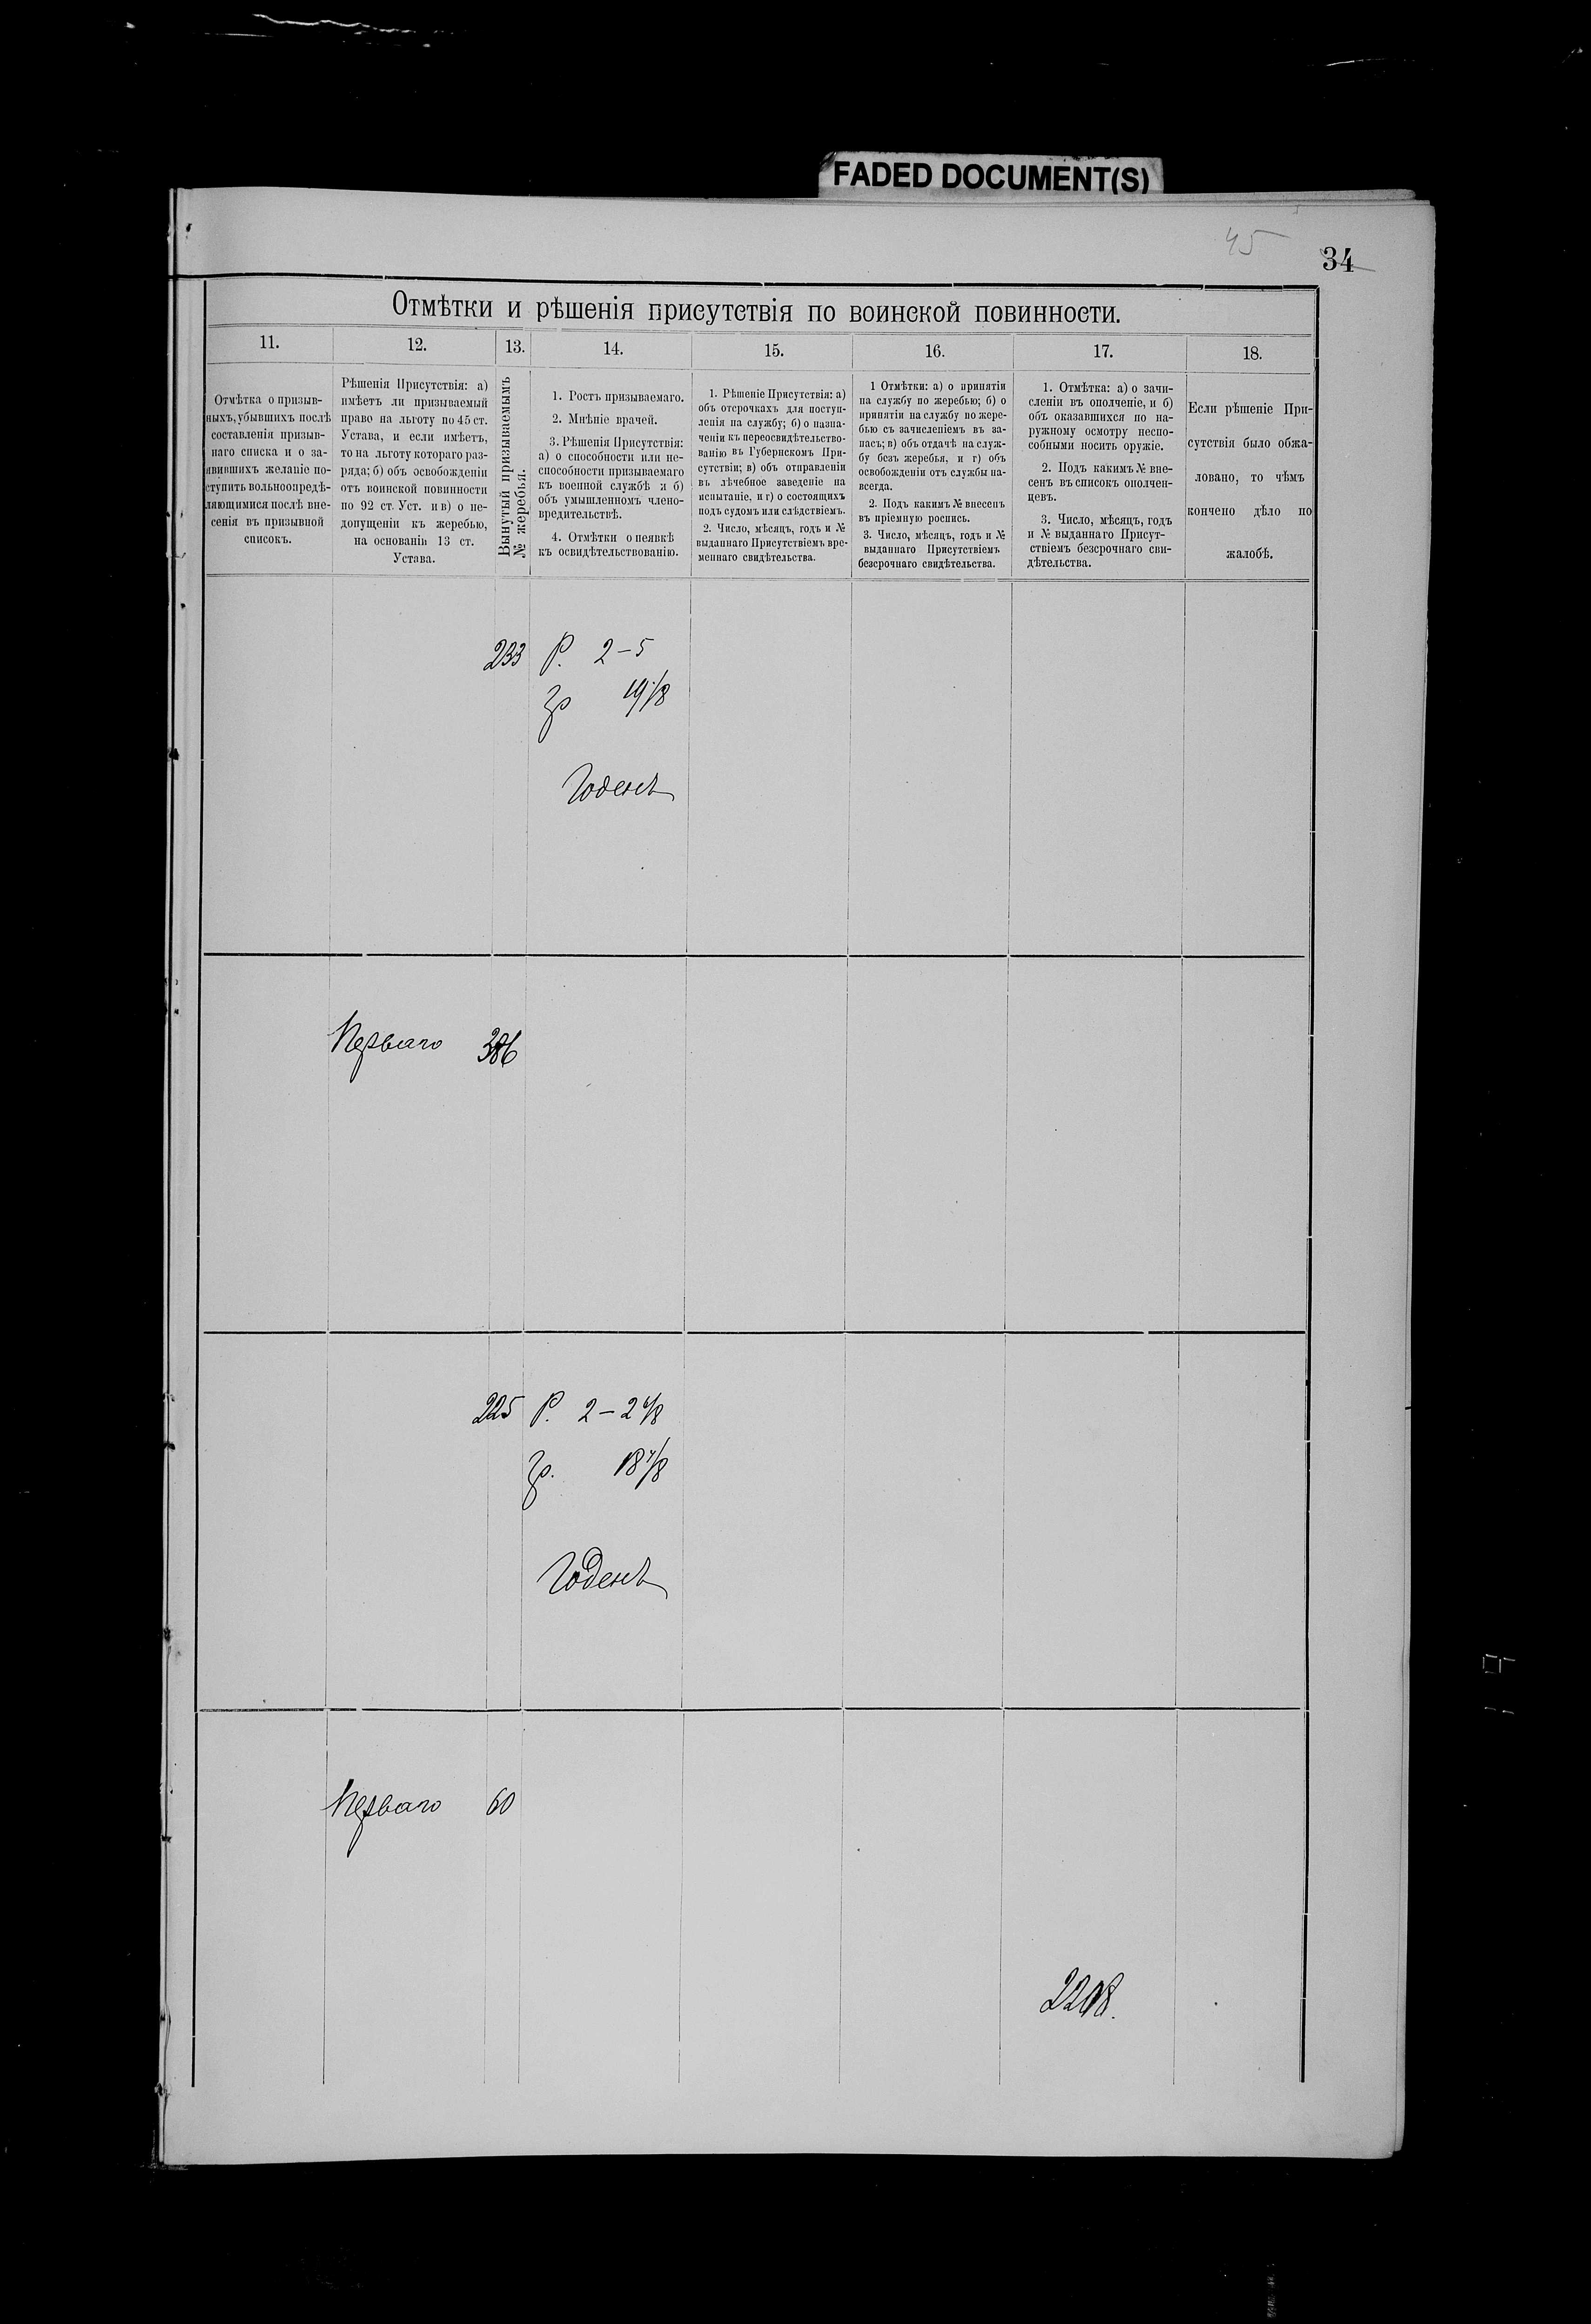 FADED DOCUMENT(S)
45
34
Отмѣтки и рѣшенія присутствія по воинской повинности.
11.
12.
13.
14.
15.
16.
17.
18.
Отмѣтка о призыв-
ныхъ, убывшихъ послѣ
составленія призыв-
наго списка и о за-
явившихъ желаніе по-
ступить вольноопредѣ-
ляющимися послѣ вне-
сенія въ призывной
списокъ.
Рѣшенія Присутствія: а)
имѣетъ ли призываемый
право на льготу по 45 ст.
Устава, и если имѣетъ,
то на льготу котораго раз-
ряда; б) объ освобожденіи
отъ воинской повинности
по 92 ст. Уст. и в) о не-
допущеніи къ жеребью,
на основаніи 13 ст.
Устава.
Вынутый призываемымъ
№ жеребья.
1. Ростъ призываемаго.
2. Мнѣніе врачей.
3. Рѣшенія Присутствія:
а) о способности или не-
способности призываемаго
къ военной службѣ и б)
объ умышленномъ члено-
вредительствѣ.
4. Отмѣтки о неявкѣ
къ освидѣтельствованію.
1. Рѣшеніе Присутствія: а)
объ отсрочкахъ для поступ-
ленія на службу; б) о назна-
ченіи къ переосвидѣтельство-
ванію въ Губернскомъ При-
сутствіи; в) объ отправленіи
въ лѣчебное заведеніе на
испытаніе, и г) о состоящихъ
подъ судомъ или слѣдствіемъ.
2. Число, мѣсяцъ, годъ и №
выданнаго Присутствіемъ вре-
меннаго свидѣтельства.
1 Отмѣтки: а) о принятіи
на службу по жеребью; б) о
принятіи на службу по жере-
бью съ зачисленіемъ въ за-
пасъ; в) объ отдачѣ на служ-
бу безъ жеребья, и г) объ
освобожденіи отъ службы на-
всегда.
2. Подъ какимъ № внесенъ
въ пріемную роспись.
3. Число, мѣсяцъ, годъ и №
выданнаго Присутствіемъ
безсрочнаго свидѣтельства.
1. Отмѣтка: а) о зачи-
сленіи въ ополченіе, и б)
объ оказавшихся по на-
ружному осмотру неспо-
собными носить оружіе.
2. Подъ какимъ № вне-
сенъ въ списокъ ополчен-
цевъ.
3. Число, мѣсяцъ, годъ
и № выданнаго Присут-
ствіемъ безсрочнаго сви-
дѣтельства.
Если рѣшеніе При-
сутствія было обжа-
ловано, то чѣмъ
кончено дѣло по
жалобѣ.
233 Р. 2–5
гр
Годенъ
Перваго 386
225 Р. 2–2 4/8
гр. 18 4/8
Годенъ
Перваго 60
2208.